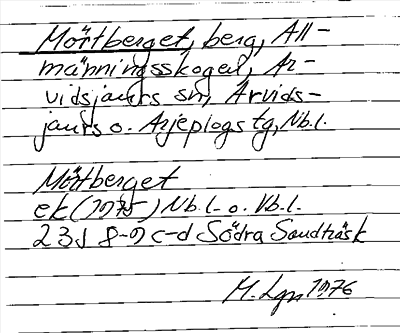 Mörtberget, berg, All-
männingsskogen, Ar-
vidsjaurs sn, Arvids-
jaurs o. Arjeplogs tg, Nb.l.
Mörtberget
ek (1975) Nb.l. o. Vb.l.
23J 8-9 c-d Södra Sandträsk
M. Lgn 1976